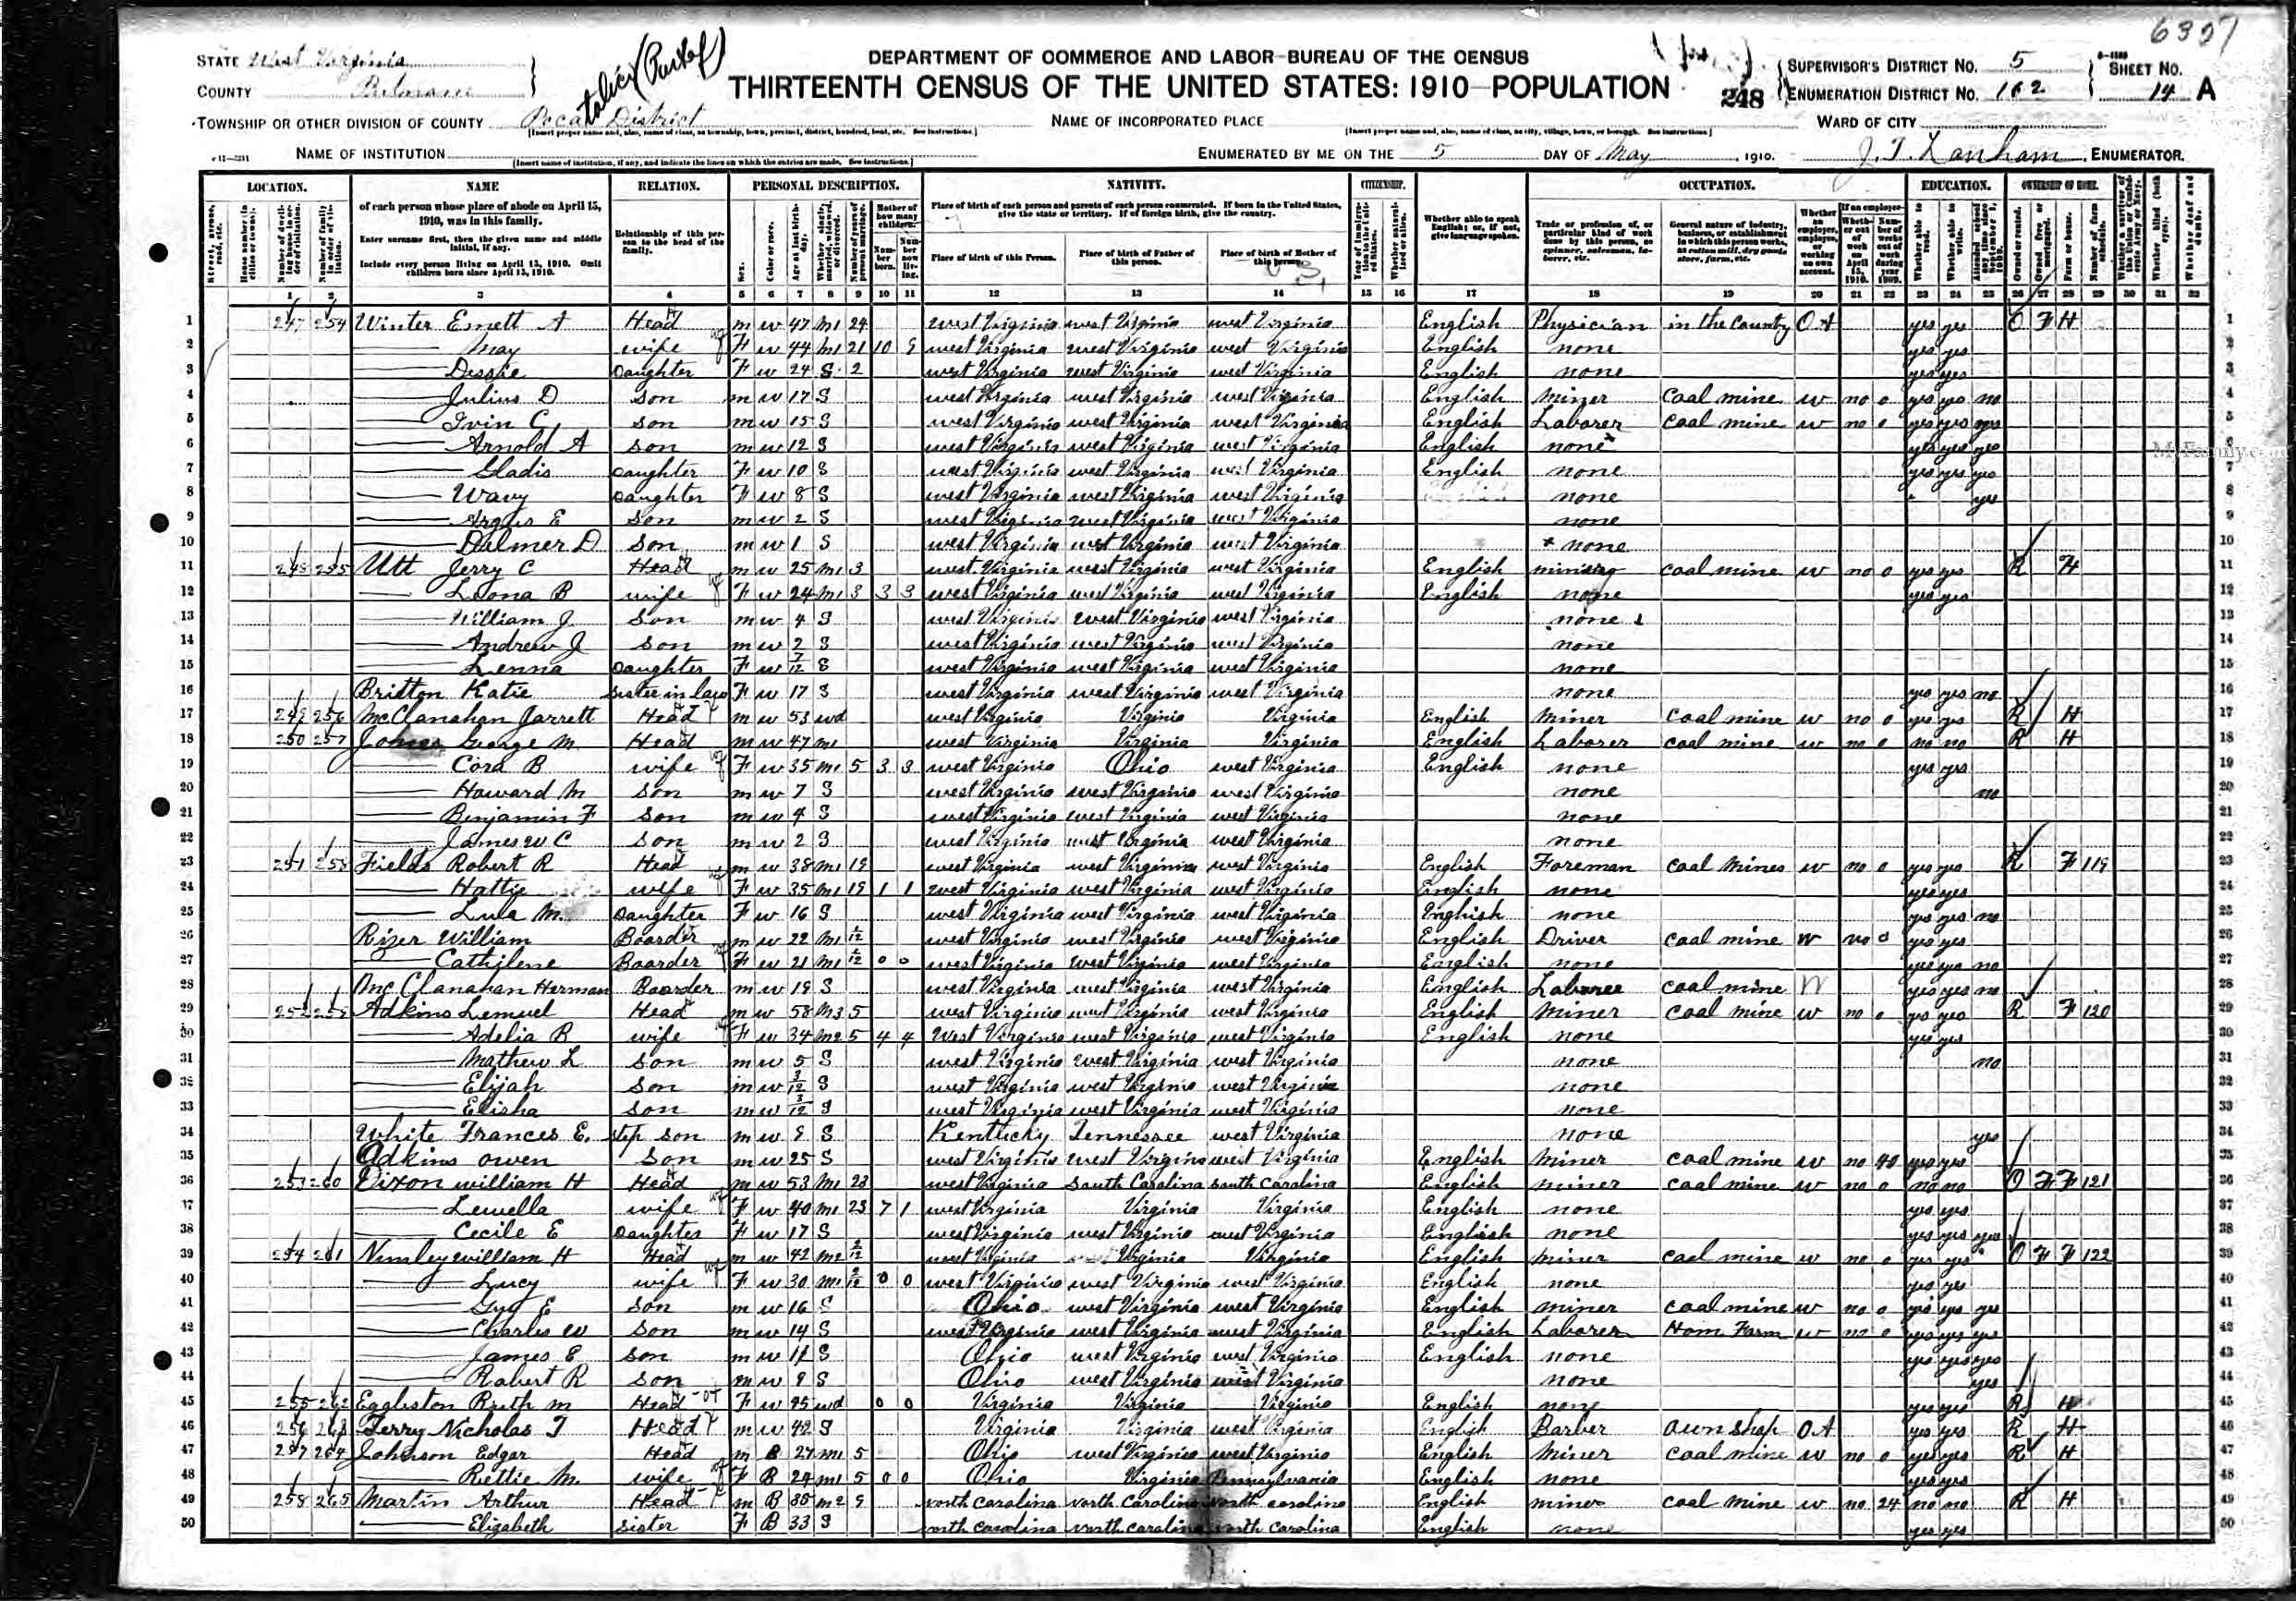 6307
STATE West Virginia
COUNTY Putnam
Pocatalico (Part of) District
TOWNSHIP OR OTHER DIVISION OF COUNTY
[Insert proper name and, also, name of class, as township, town, precinct, district, hundred, beat, etc. See instructions.]
NAME OF INSTITUTION
[Insert name of institution, if any, and indicate the lines on which the entries are made. See instructions.]
DEPARTMENT OF COMMERCE AND LABOR-BUREAU OF THE CENSUS
THIRTEENTH CENSUS OF THE UNITED STATES: 1910-POPULATION
248
NAME OF INCORPORATED PLACE
[Insert proper name and, also, name of class, as city, village, town, or borough. See instructions.]
ENUMERATED BY ME ON THE 5 DAY OF May, 1910. J. T. Lanham, ENUMERATOR.
SUPERVISOR'S DISTRICT NO. 5
ENUMERATION DISTRICT NO. 162
SHEET NO. 14 A
WARD OF CITY
LOCATION. NAME RELATION. PERSONAL DESCRIPTION. NATIVITY. CITIZENSHIP. OCCUPATION. EDUCATION. OWNERSHIP OF HOME.
of each person whose place of abode on April 15, 1910, was in this family.
Enter surname first, then the given name and middle initial, if any.
Include every person living on April 15, 1910. Omit children born since April 15, 1910.
Relationship of this person to the head of the family.
Place of birth of each person and parents of each person enumerated. If born in the United States, give the state or territory. If of foreign birth, give the country.
Place of birth of this Person. Place of birth of Father of this person. Place of birth of Mother of this person.
Whether able to speak English; or, if not, give language spoken.
1 2 3 4 5 6 7 8 9 10 11 12 13 14 15 16 17 18 19 20 21 22 23 24 25 26 27 28 29 30 31 32
1 247 254 Winter Emett A Head m w 47 M1 24 west Virginia west Virginia west Virginia English Physician in the County OA yes yes O F H 1
2 May wife F w 44 M1 21 10 9 west Virginia west Virginia west Virginia English none yes yes 2
3 Dessie Daughter F w 24 S 2 west Virginia west Virginia west Virginia English none yes yes 3
4 Julius D Son m w 17 S west Virginia west Virginia west Virginia English Miner Coal mine w no 0 yes yes no 4
5 Ivin C, Son m w 15 S west Virginia west Virginia west Virginia English Laborer coal mine w no 0 yes yes yes 5
6 Arnold A Son m w 12 S west Virginia west Virginia west Virginia English none yes yes yes 6
7 Gladis Daughter F w 10 S west Virginia west Virginia west Virginia English none yes yes yes 7
8 Wavy Daughter F w 8 S west Virginia west Virginia west Virginia none yes 8
9 Argus E Son m w 2 S west Virginia west Virginia west Virginia none 9
10 Delmer D Son m w 1 S west Virginia west Virginia west Virginia none 10
11 248 255 Utt Jerry C Head m w 25 M1 3 west Virginia west Virginia west Virginia English mining coal mine w no 0 yes yes R H 11
12 Leona B wife F w 24 M1 3 3 3 west Virginia west Virginia west Virginia English none yes yes 12
13 William J. Son m w 4 S west Virginia west Virginia west Virginia none 13
14 Andrew J Son m w 2 S west Virginia west Virginia west Virginia none 14
15 Lenna Daughter F w 7/12 S west Virginia west Virginia west Virginia none 15
16 Britton Katie Sister in law F w 17 S west Virginia west Virginia west Virginia none yes yes no 16
17 249 256 McClanahan Jarrett Head m w 53 wd west Virginia Virginia Virginia English Miner Coal mine w no 0 yes yes R H 17
18 250 257 Jones George M Head m w 47 m1 west Virginia Virginia Virginia English Laborer coal mine w no 0 no no R H 18
19 Cora B wife F w 35 m1 5 3 3 west Virginia Ohio west Virginia English none yes yes 19
20 Howard M Son m w 7 S west Virginia west Virginia west Virginia none no 20
21 Benjamin F Son m w 4 S west Virginia west Virginia west Virginia none 21
22 James W C Son m w 2 S west Virginia west Virginia west Virginia none 22
23 251 258 Fields Robert R Head m w 38 M1 19 west Virginia west Virginia west Virginia English Foreman coal Mines w no 0 yes yes R F 119 23
24 Hattie wife F w 35 M1 19 1 1 west Virginia west Virginia west Virginia English none yes yes 24
25 Lula M. Daughter F w 16 S west Virginia west Virginia west Virginia English none yes yes no 25
26 Rizer William Boarder m w 22 M1 west Virginia west Virginia west Virginia English Driver coal mine w no 0 yes yes 26
27 Cathilene Boarder F w 21 M1 0 0 west Virginia west Virginia west Virginia English none yes yes no 27
28 McClanahan Herman Boarder m w 19 S west Virginia west Virginia west Virginia English Laborer coal mine W yes yes no 28
29 252 259 Adkins Lemuel Head m w 58 M3 5 west Virginia west Virginia west Virginia English Miner Coal mine w no 0 yes yes R F 120 29
30 Adelia B wife F w 34 M2 5 4 4 West Virginia west Virginia west Virginia English none yes yes 30
31 Mathew L Son m w 5 S west Virginia west Virginia west Virginia none no 31
32 Elijah Son m w 3/12 S west Virginia west Virginia west Virginia none 32
33 Elisha Son m w 3/12 S west Virginia west Virginia west Virginia none 33
34 White Frances E. Step son m w 9 S Kentucky Tennessee west Virginia none yes 34
35 Adkins Owen Son m w 25 S west Virginia west Virginia west Virginia English Miner coal mine w no 40 yes yes 35
36 253 260 Dixon William H Head m w 53 M1 23 west Virginia South Carolina South Carolina English miner coal mine w no 0 no no O F F 121 36
37 Lewella wife F w 40 m1 23 7 1 west Virginia Virginia Virginia English none yes yes 37
38 Cecile E Daughter F w 17 S west Virginia west Virginia west Virginia English none yes yes yes 38
39 254 261 Nimley William H Head m w 42 M2 2/12 west Virginia Virginia Virginia English Miner coal mine w no 0 yes yes O F F 122 39
40 Lucy wife F w 30 2/12 0 0 west Virginia west Virginia west Virginia English none yes yes 40
41 Guy E Son m w 16 S Ohio west Virginia west Virginia English miner coal mine w no 0 yes yes yes 41
42 Charles W Son m w 14 S west Virginia west Virginia west Virginia English Laborer Hom Farm w no 0 yes yes yes 42
43 James E Son m w 11 S Ohio west Virginia west Virginia English none yes yes yes 43
44 Robert R Son m w 9 S Ohio west Virginia west Virginia none yes 44
45 255 262 Eggleston Ruth M Head F w wd 0 0 Virginia Virginia Virginia English none yes yes R H 45
46 256 263 Terry Nicholas T Head m w 42 S Virginia Virginia west Virginia English Barber Own Shop OA yes yes R H 46
47 257 264 Johnson Edgar Head m B 27 m1 5 Ohio west Virginia west Virginia English Miner coal mine w no 0 yes yes R H 47
48 Rettie M. wife F B 24 m1 5 0 0 Ohio Virginia Pennsylvania English none yes yes 48
49 258 265 Martin Arthur Head m B 35 m2 9 north Carolina north Carolina north Carolina English miner coal mine w no 24 no no R H 49
50 Elizabeth Sister F B 33 S north Carolina north Carolina north Carolina English none yes yes 50